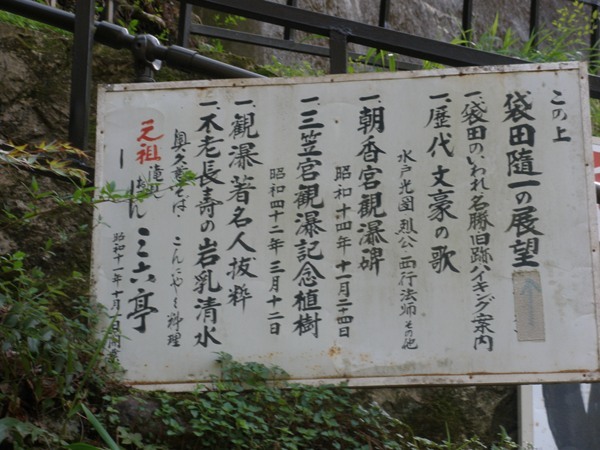 この上
袋田随一の展望
一、袋田のいわれ名勝旧跡ハイキング案内
一、歴代文豪の歌
水戸光圀 烈公 西行法師その他
一、朝香宮観瀑碑
昭和十四年十一月二十四日
一、三笠宮観瀑記念植樹
昭和四十二年三月十二日
一、観瀑著名人抜粋
一、不老長寿の岩乳清水
奥久慈そば こんにゃく料理
元祖 三六亭
昭和十一年十月